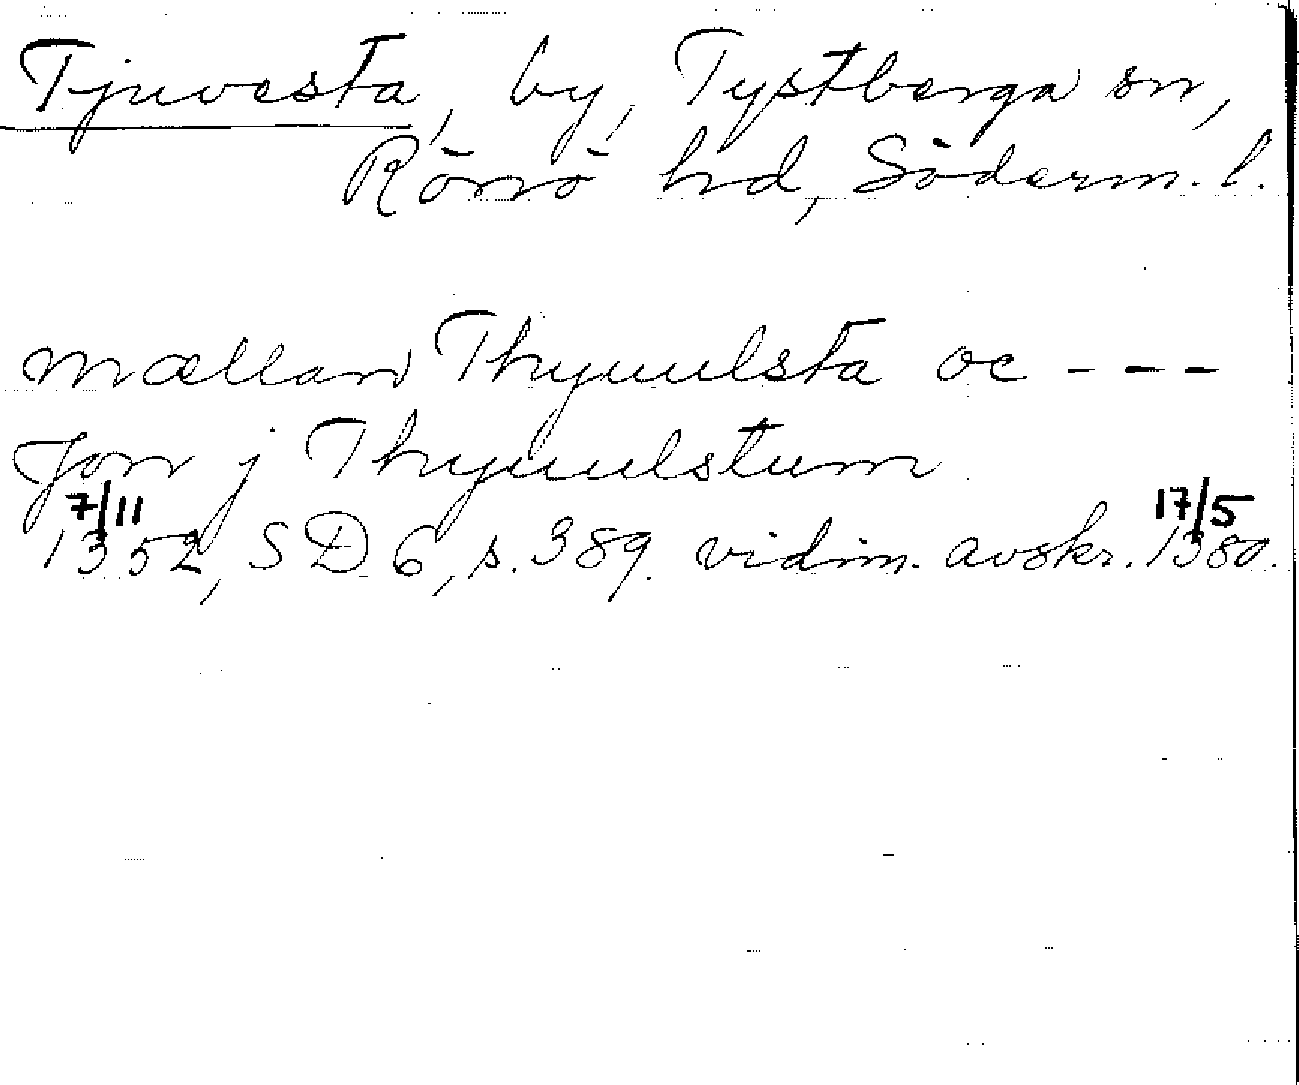 Tjuvesta, by, Tystberga sn,
Rönö hd, Söderm. l.
mællan Thyuulsta oc ---
Jon j Thyuulstum
7/11 1352, SD 6, s. 389. vidim. avskr. 17/5 1380.